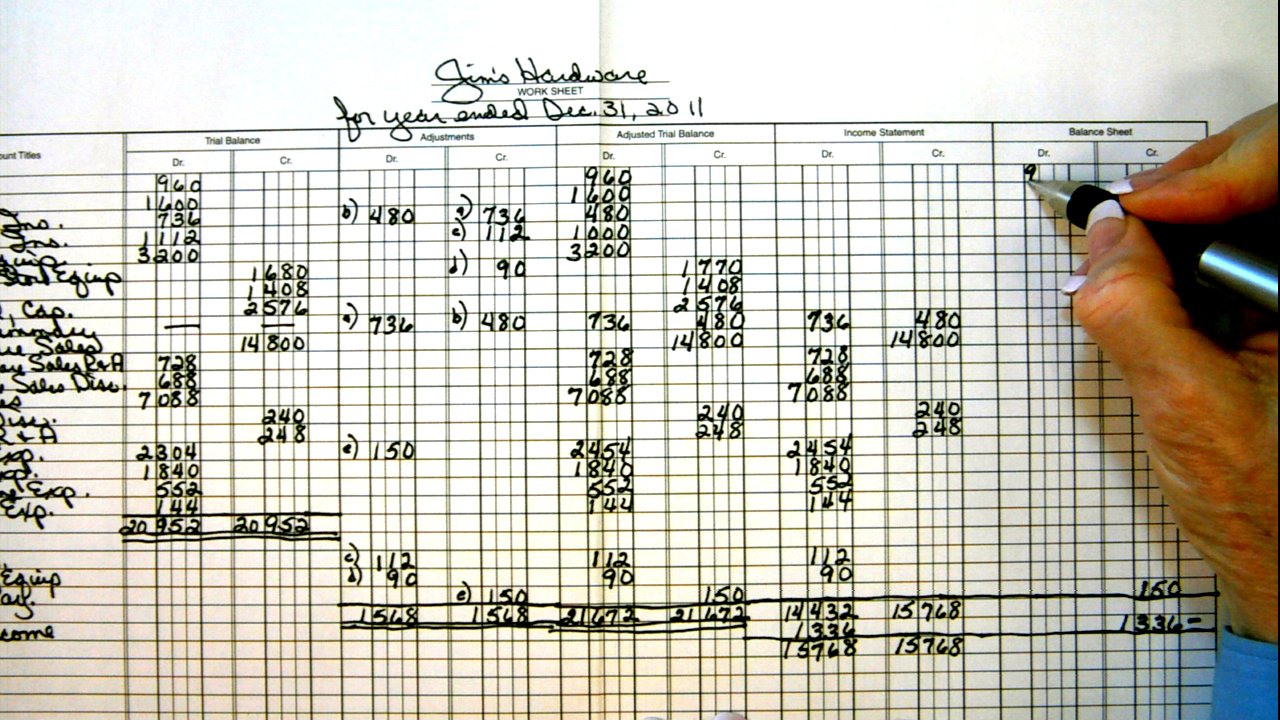 Jim's Hardware
WORK SHEET
for year ended Dec. 31, 2011
ount Titles Trial Balance Adjustments Adjusted Trial Balance Income Statement Balance Sheet
Dr. Cr. Dr. Cr. Dr. Cr. Dr. Cr. Dr. Cr.
960 960 9
1600 1600
Ins. 736 b) 480 a) 736 480
Ins. 1112 c) 112 1000
quip. 3200 3200
Store Equip 1680 d) 90 1770
1408 1408
, Cap. 2576 2576
— — a) 736 b) 480 736 480 736 480
Sales 14800 14800 14800
Sales R+A 728 728 728
Sales Disc. 688 688 688
es 7088 7088 7088
Disc. 240 240 240
R + A 248 248 248
xp. 2304 e) 150 2454 2454
xp. 1840 1840 1840
Exp. 552 552 552
Exp. 144 144 144
20952 20952
c) 112 112 112
Equip d) 90 90 90
ay. e) 150 150 150
1568 1568 21672 21672 14432 15768
come 1336 1336-
15768 15768